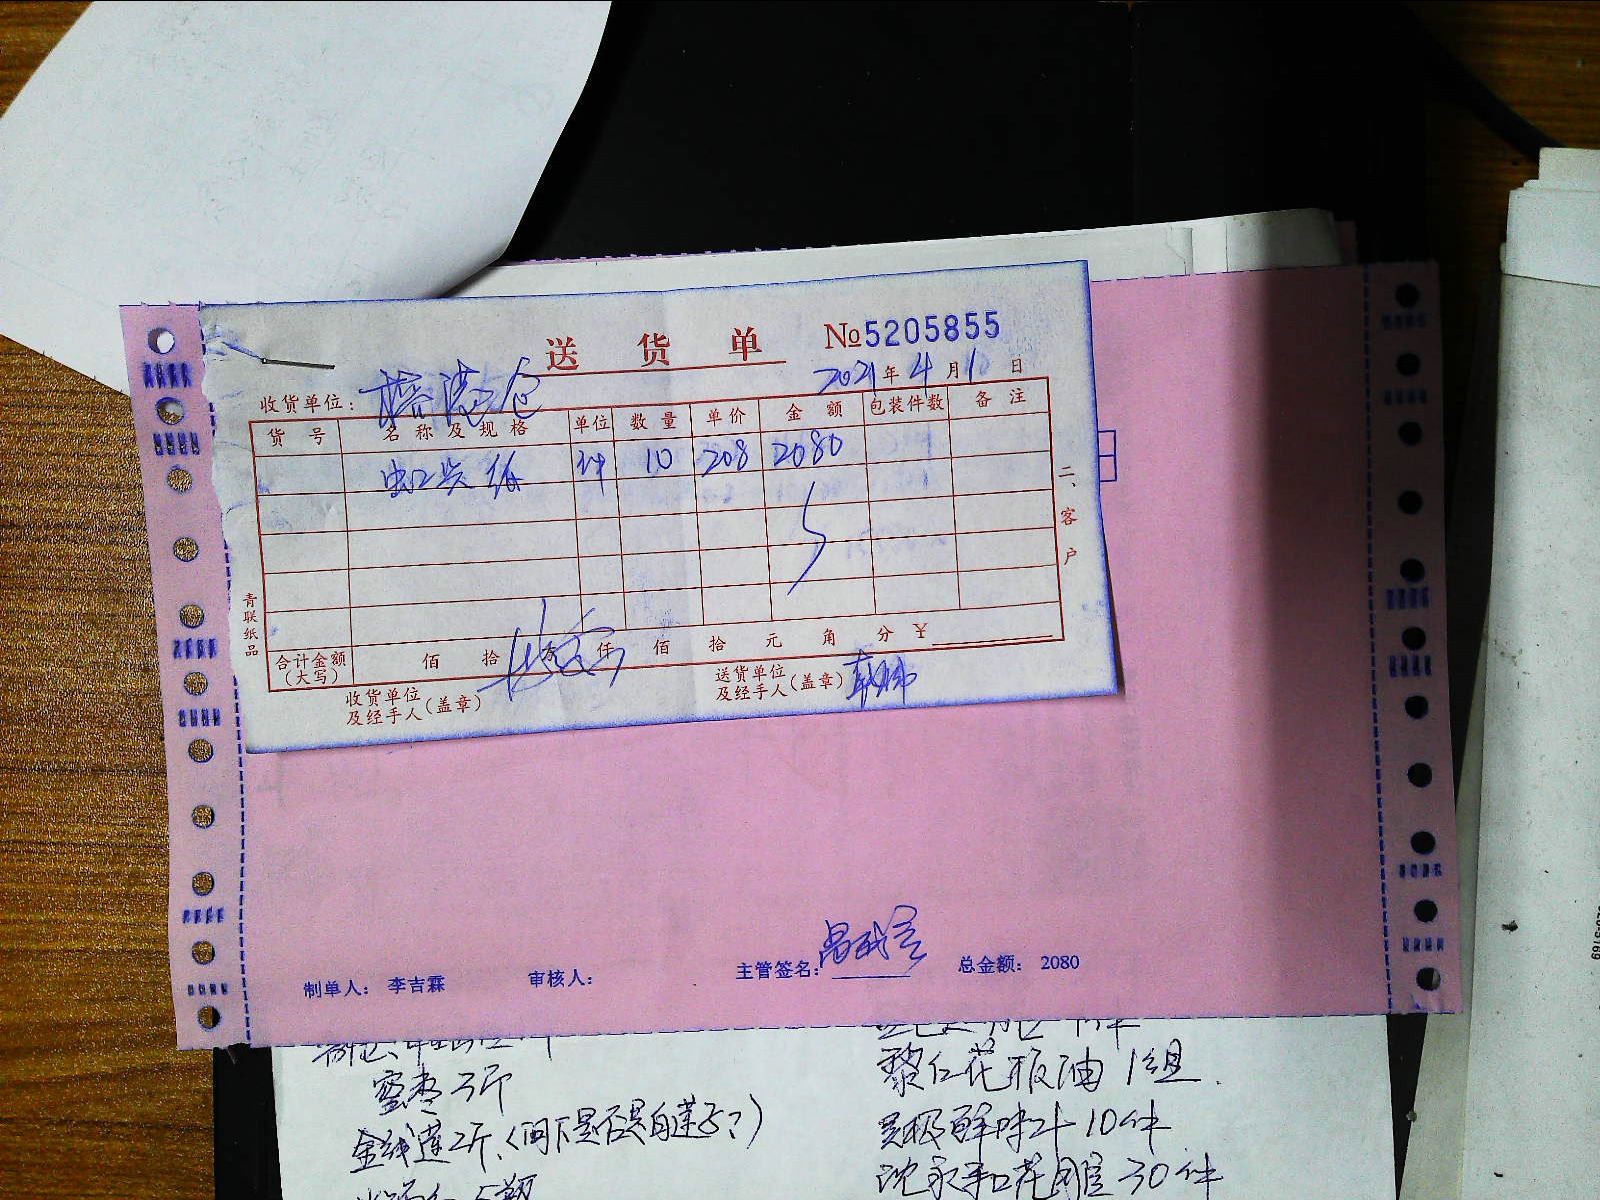 送 货 单 №5205855
收货单位： 2021年4月1日
货 号 名 称 及 规 格 单位 数 量 单价 金 额 包装件数 备 注
件 10 208 2080
二、客户
青联纸品
合计金额（大写） 佰 拾 万 仟 佰 拾 元 角 分 ¥
收货单位及经手人（盖章） 送货单位及经手人（盖章）
制单人： 李吉霖 审核人： 主管签名： 总金额： 2080
蜜枣3斤
黎红花椒油 1组
金线莲2斤（问下是否是白莲子？）
极鲜味汁10件
沈永和花雕30件